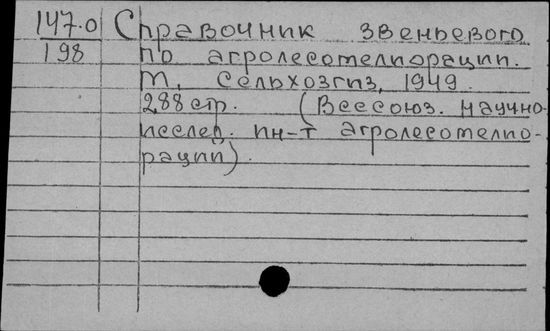 147.0 Справочник звеньевого
198 по агролесомелиорации.
М., Сельхозгиз, 1949.
288 стр. (Всесоюз. научно-
исслед. ин-т агролесомелио-
раций).